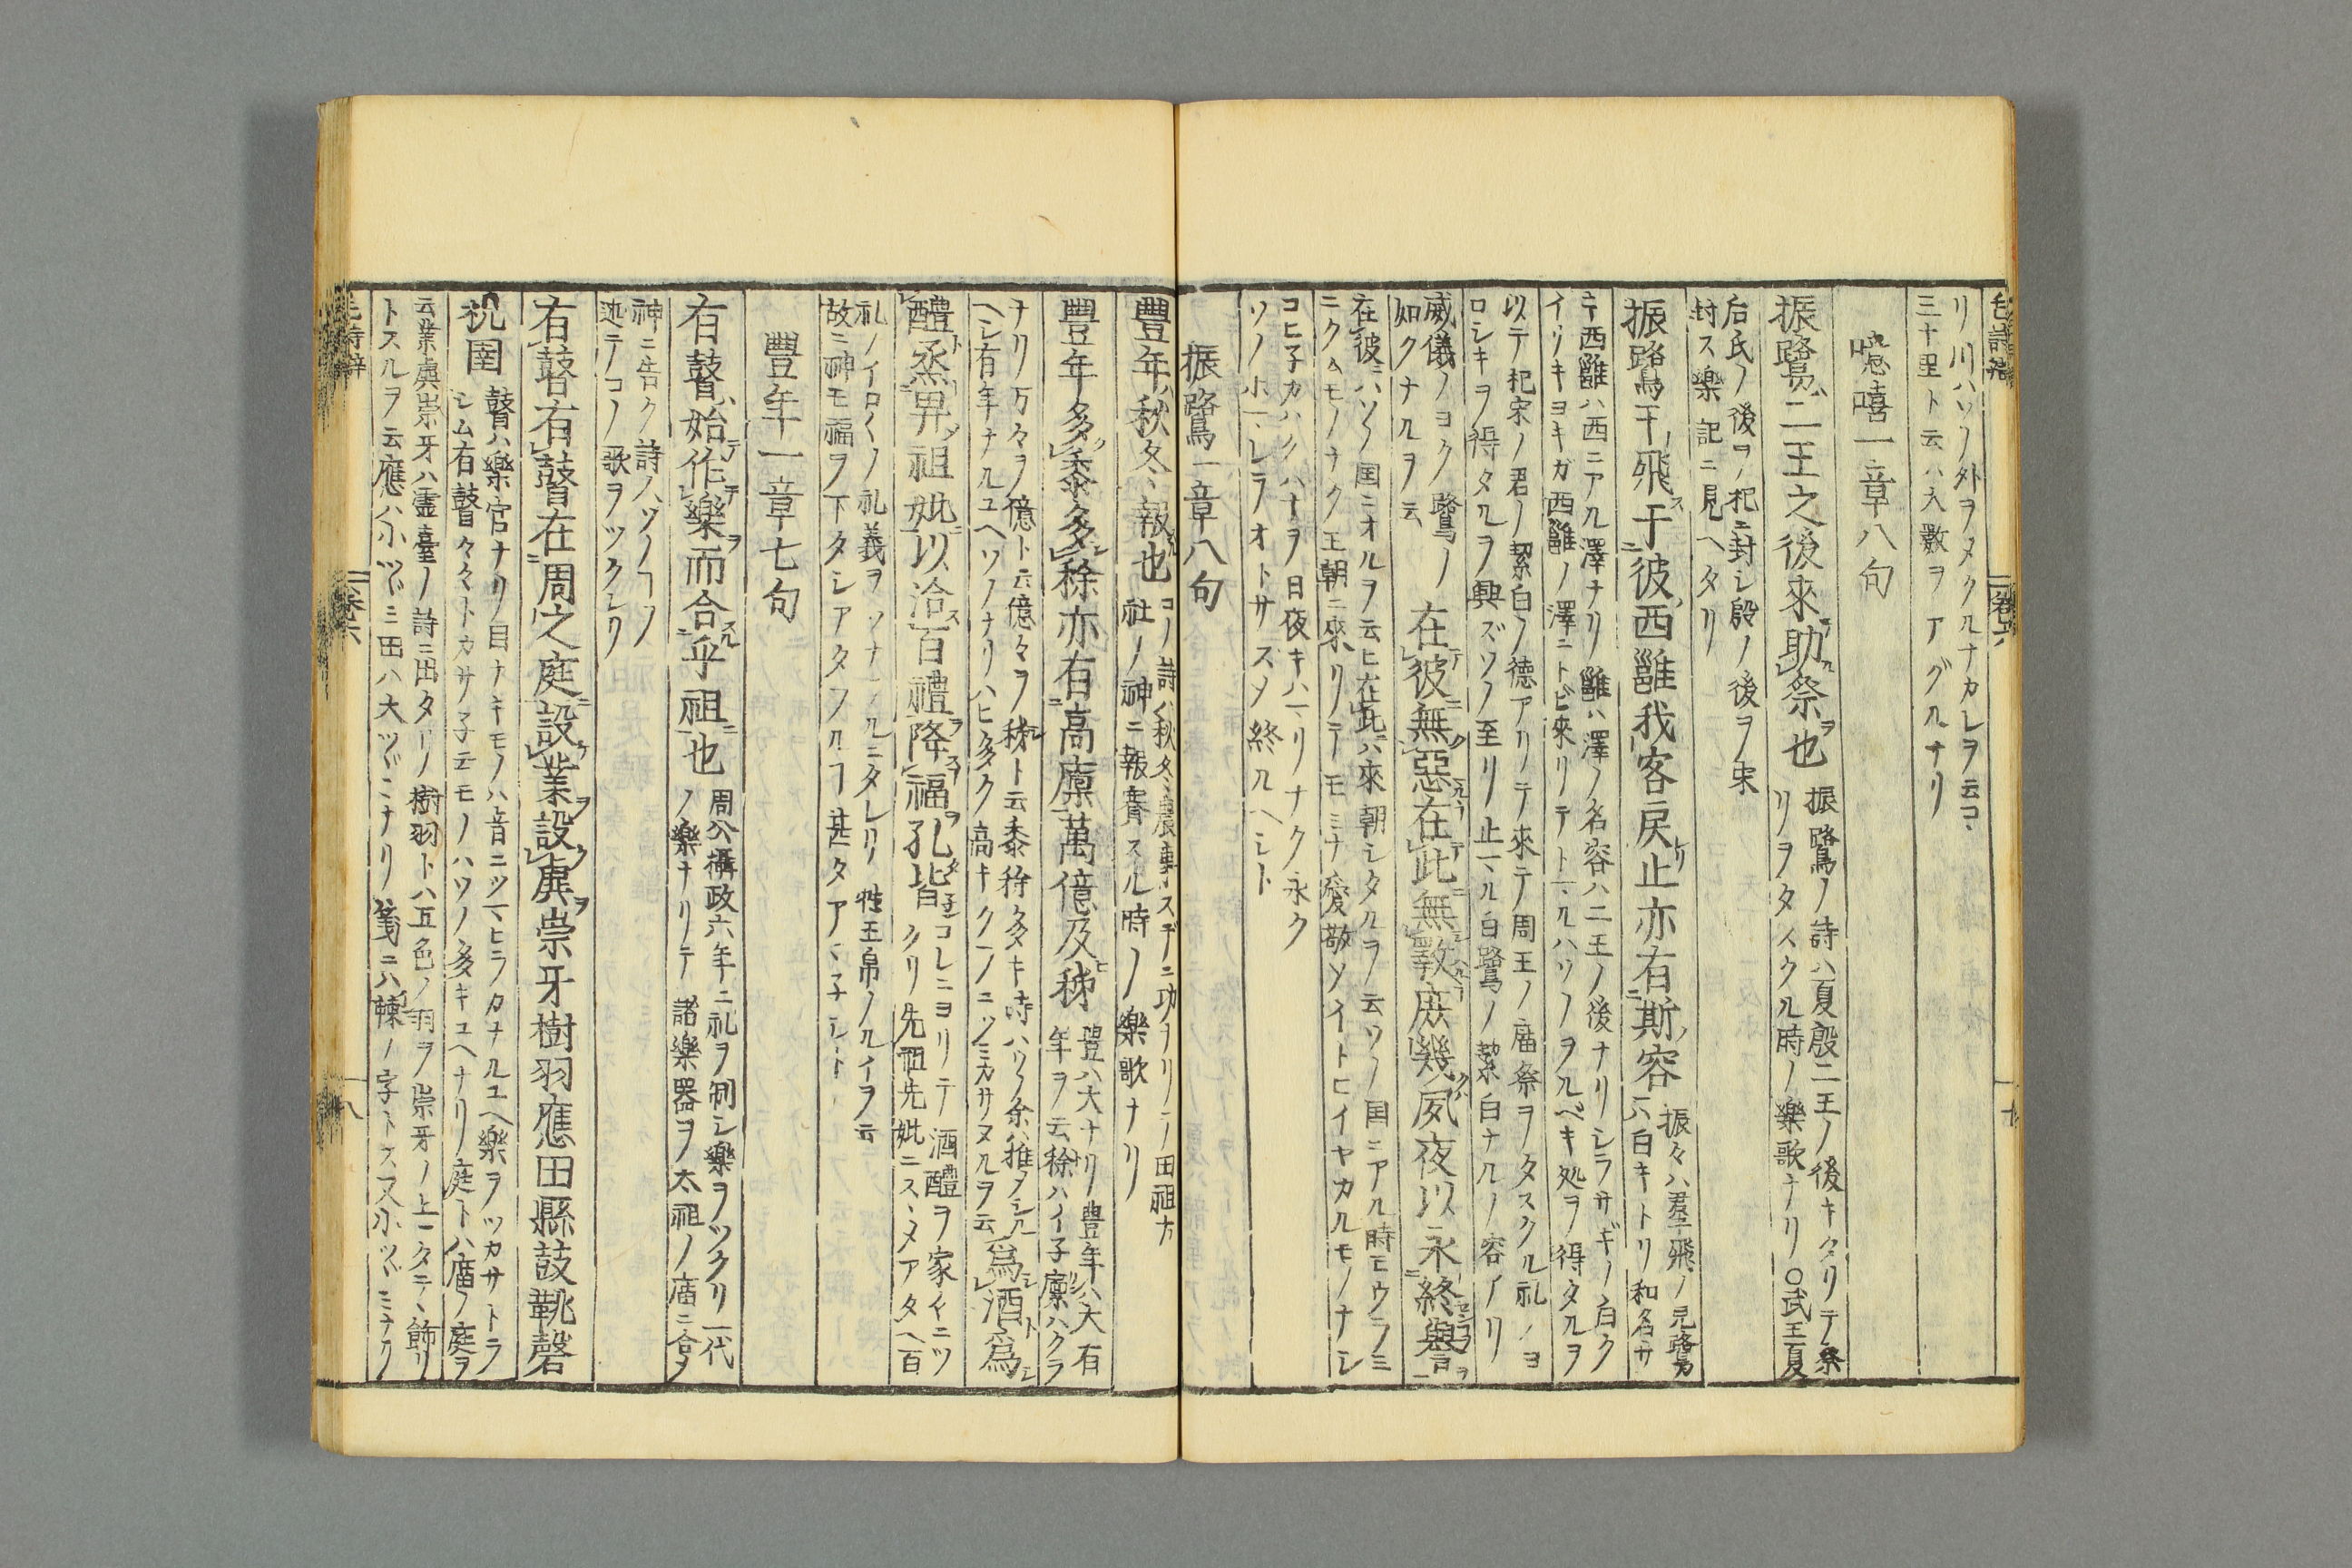 リ川ハソノ外ヲメクルナカレヲ云コヽ
三十里ト云ハ大數ヲアグルナリ
噫嘻一章八句
振鷺二王之後來助祭也
振鷺ノ詩ハ夏殷二王ノ後キタリテ祭
リヲタスクル時ノ樂歌ナリ○武王夏
后氏ノ後ヲ杞ニ封シ殷ノ後ヲ宋
封ス樂記ニ見ヘタリ
振鷺于飛于彼西雝我客戾止亦有斯容
振々ハ羣飛ノ皃鷺
ハ白キトリ和名サ
キ西雝ハ西ニアル澤ナリ雝ハ澤ノ名客ハ二王ノ後ナリシラサギノ白ク
イサキヨキガ西雝ノ澤ニトビ來リテトマルハソノヲルベキ処ヲ得タルヲ
以テ杞宋ノ君ノ絜白ノ德アリテ來テ周王ノ庿祭ヲタスクル礼ノヨ
ロシキヲ得タルヲ興ズソノ至リ止マル白鷺ノ絜白ナルノ容アリ
威儀ノヨク鷺ノ
如クナルヲ云
在彼無惡在此無斁庶幾夙夜以永終譽
在彼ハソノ国ニオルヲ云ヒ在此ハ來朝シタルヲ云ソノ国ニアル時モウラミ
ニクムモノナク王朝ニ來リテモミナ愛敬ソイトヒイヤカルモノナシ
コヒ子カハクハ十ヲ日夜キハマリナク永ク
ソノホマレヲオトサズメ終ルヘシト
振鷺一章八句
豐年秋冬報也
コノ詩ハ秋冬農事スデニ功ヲハリテ田祖方
社ノ神ニ報賽スル時ノ樂歌ナリ
豐年多黍多稌亦有高廩萬億及秭
豐ハ大ナリ豊年ハ大有
年ヲ云稌ハイ子廩ハクラ
ナリ万々ヲ億ト云億々ヲ秭ト云黍稌多キ時ハソノ余ハ推メシル
ヘシ有年ナルユヘソノナリハヒ多ク高キクラノニツミカサヌルヲ云
爲酒爲
醴烝畀祖妣以洽百禮降福孔皆
コレニヨリテ酒醴ヲ家イニツ
クリ先祖先妣ニスヽメアタヘ百
礼ノイロ〱ノ礼義ヲソナフルニタレリ牲玉帛ノルイヲ云
故ニ神モ福ヲ下タシアタフルヿ甚タアマ子シト
豐年一章七句
有瞽始作樂而合乎祖也
周公攝政六年ニ礼ヲ制シ樂ヲツクリ一代
ノ樂ナリテ諸樂器ヲ太祖ノ庿ニ合ヲ
神ニ告ク詩人ソノヿノ
迹テコノ歌ヲツクレリ
有瞽有瞽在周之庭設業設虡崇牙樹羽應田縣鼓鞉磬
柷圉
瞽ハ樂官ナリ目ナキモノハ音ニツマヒラカナルユヘ樂ヲツカサトラ
シム有瞽々々トカサ子云モノハソノ多キユヘナリ庭トハ庿ノ庭ヲ
云業虡崇牙ハ霊臺ノ詩ニ出タリ樹羽トハ五色ノ羽ヲ崇牙ノ上ニタテヽ飾リ
トスルヲ云應ハ小ツヾミ田ハ大ツヾミナリ箋ニハ朄ノ字トス又小ツヾミナリ